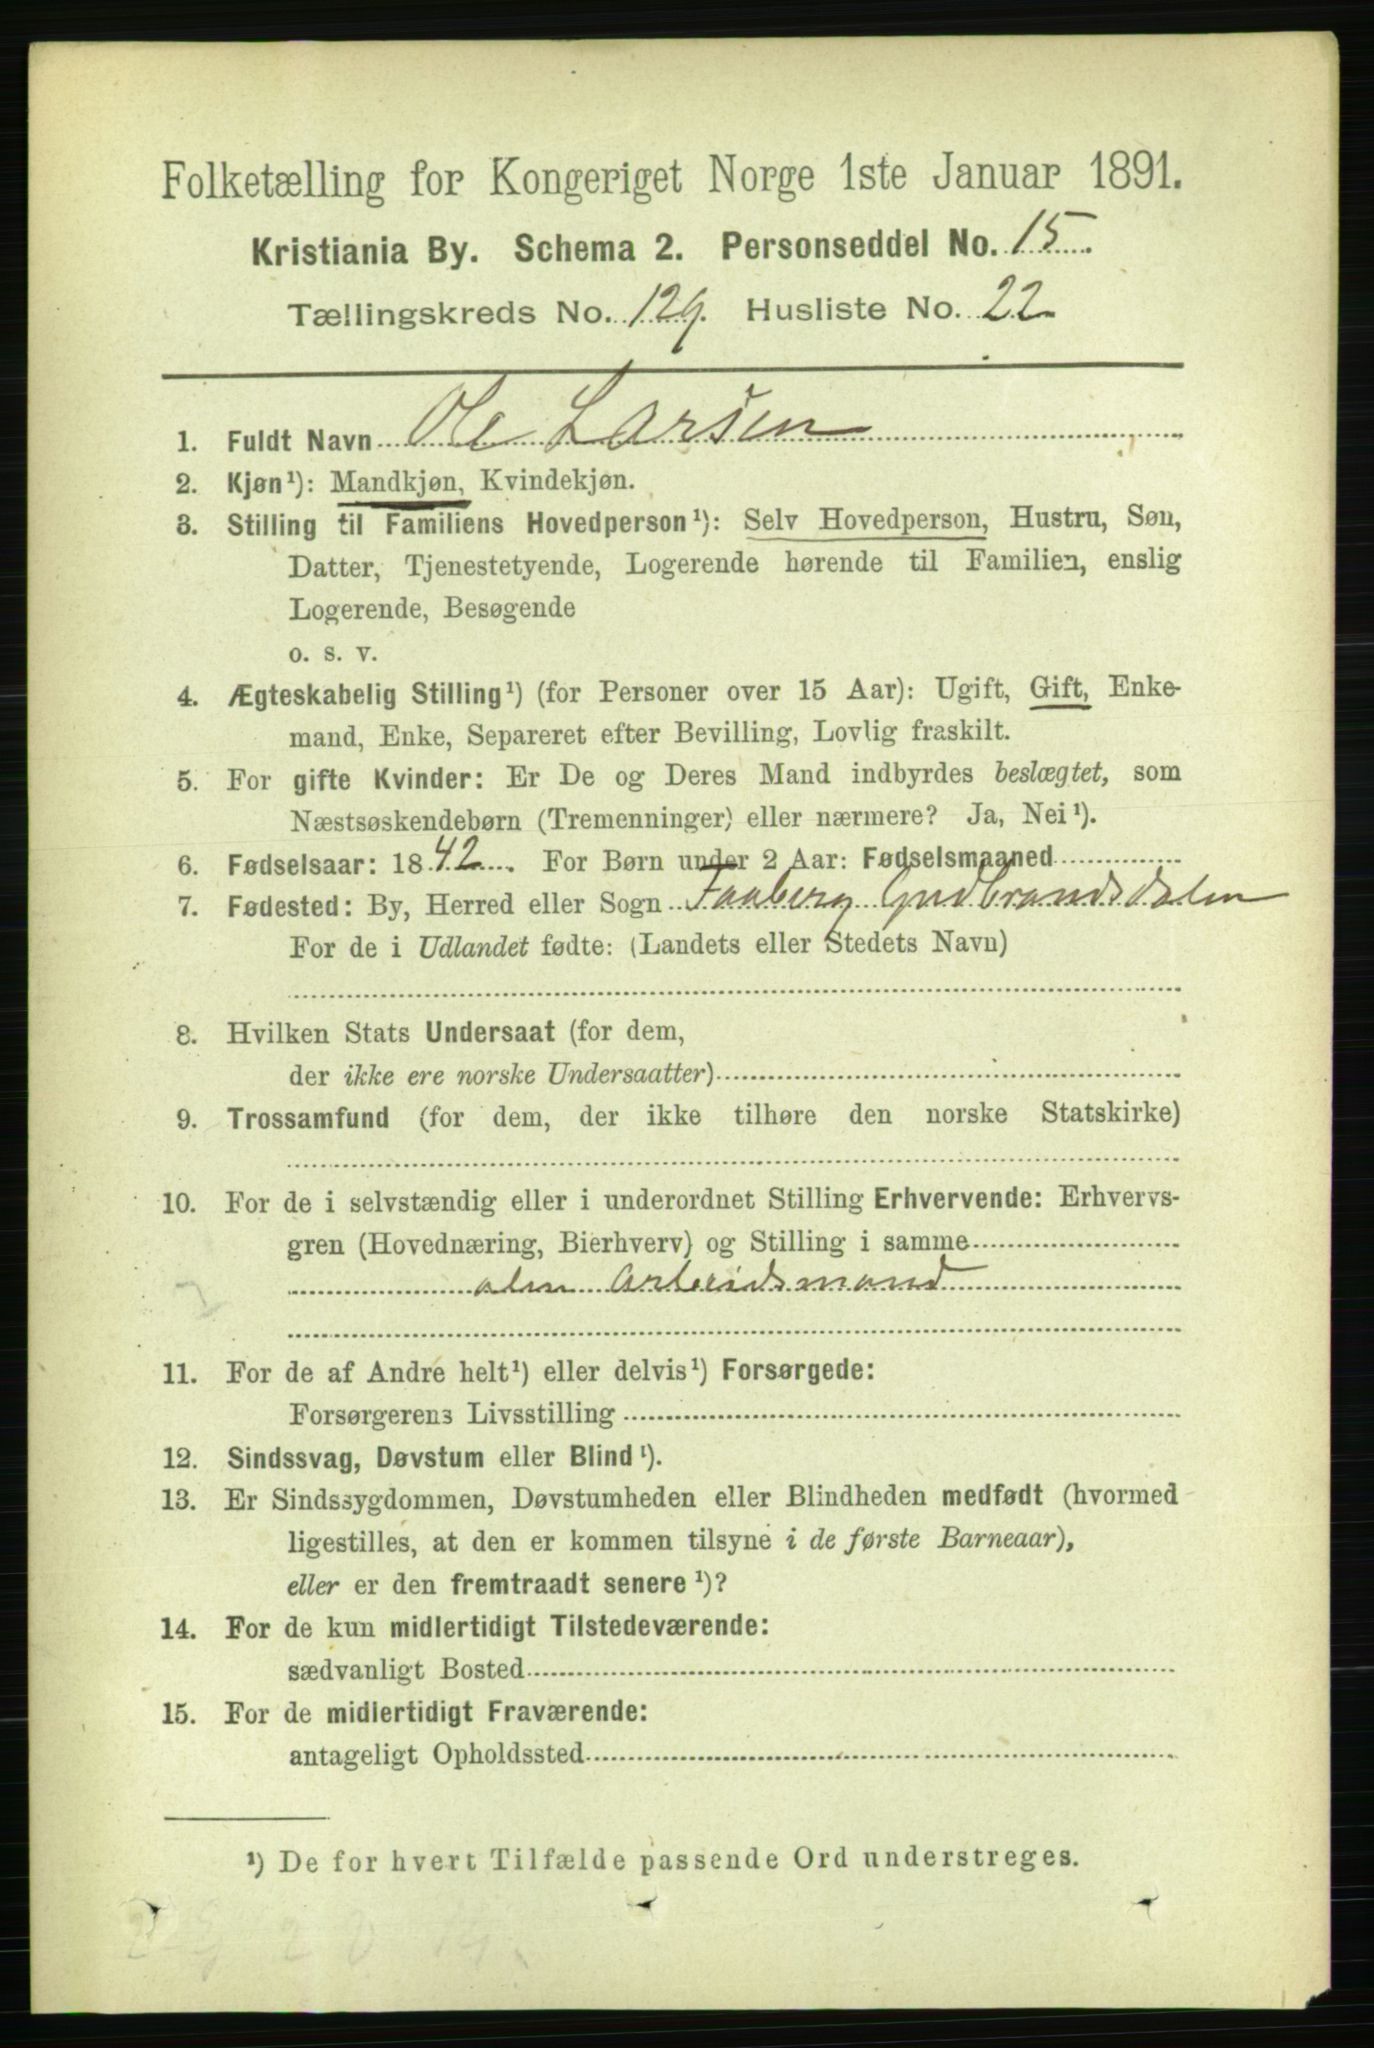 Folketælling for Kongeriget Norge 1ste Januar 1891.
Kristiania By. Schema 2. Personseddel No. 15
Tællingskreds No. 129. Husliste No. 22
1. Fuldt Navn Ole Larsen
2. Kjøn¹): Mandkjøn, Kvindekjøn.
3. Stilling til Familiens Hovedperson¹): Selv Hovedperson, Hustru, Søn,
Datter, Tjenestetyende, Logerende hørende til Familien, enslig
Logerende, Besøgende
o. s. v.
4. Ægteskabelig Stilling¹) (for Personer over 15 Aar): Ugift, Gift, Enke-
mand, Enke, Separeret efter Bevilling, Lovlig fraskilt.
5. For gifte Kvinder: Er De og Deres Mand indbyrdes beslægtet, som
Næstsøskendebørn (Tremenninger) eller nærmere? Ja, Nei¹).
6. Fødselsaar: 1842. For Børn under 2 Aar: Fødselsmaaned
7. Fødested: By, Herred eller Sogn Faaberg Gudbrandsdalen
For de i Udlandet fødte: (Landets eller Stedets Navn)
8. Hvilken Stats Undersaat (for dem,
der ikke ere norske Undersaatter)
9. Trossamfund (for dem, der ikke tilhøre den norske Statskirke)
10. For de i selvstændig eller i underordnet Stilling Erhvervende: Erhvervs-
gren (Hovednæring, Bierhverv) og Stilling i samme
alm Arbeidsmand
11. For de af Andre helt¹) eller delvis¹) Forsørgede:
Forsørgerens Livsstilling
12. Sindssvag, Døvstum eller Blind¹).
13. Er Sindssygdommen, Døvstumheden eller Blindheden medfødt (hvormed
ligestilles, at den er kommen tilsyne i de første Barneaar),
eller er den fremtraadt senere¹)?
14. For de kun midlertidigt Tilstedeværende:
sædvanligt Bosted
15. For de midlertidigt Fraværende:
antageligt Opholdssted
¹) De for hvert Tilfælde passende Ord understreges.